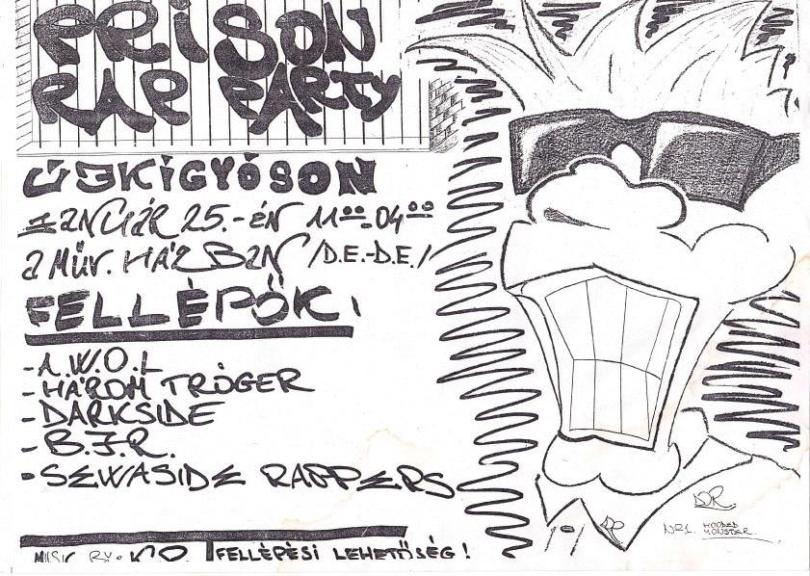 PRISON
RAP PARTY
ÚJKÍGYÓSON
JANUÁR 25.-ÉN 11⁰⁰-04⁰⁰
A MŰV. HÁZBAN /D.E.-D.E./
FELLÉPŐK:
- A.W.O.L
- HÁROM TRÓGER
- DARKSIDE
- B.F.R.
- SEWASIDE RAPPERS
MUSIC BY
FELLÉPÉSI LEHETŐSÉG!
NR1. HOODED
MONSTER